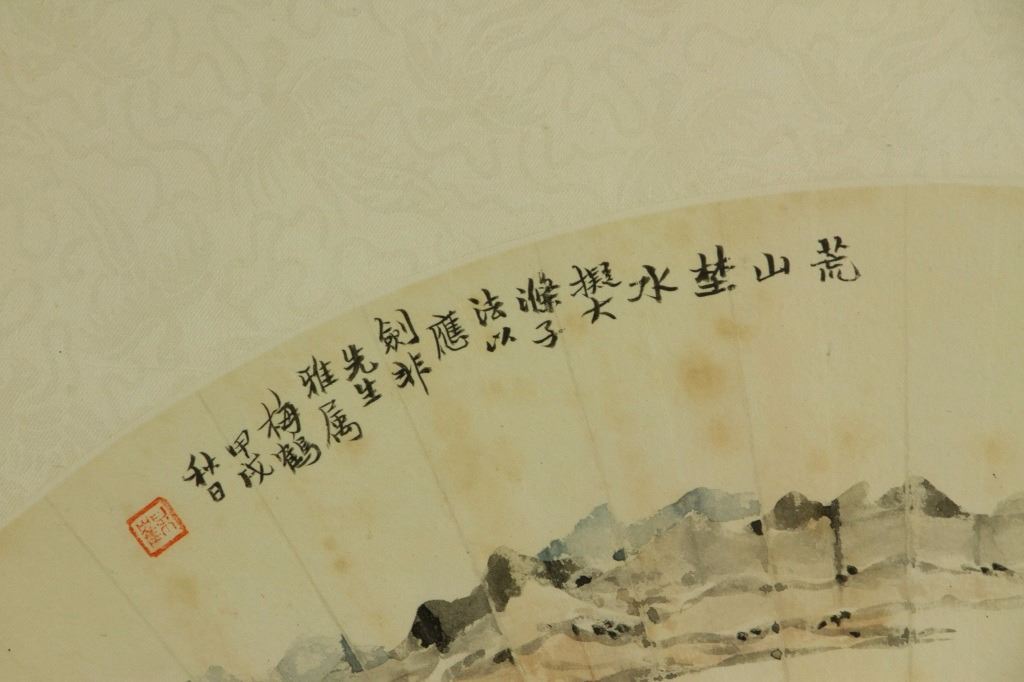 荒
山
埜
水
撰大
滌子
法以
應
劍非
先生
雅属
梅鶴
甲戌
秋日